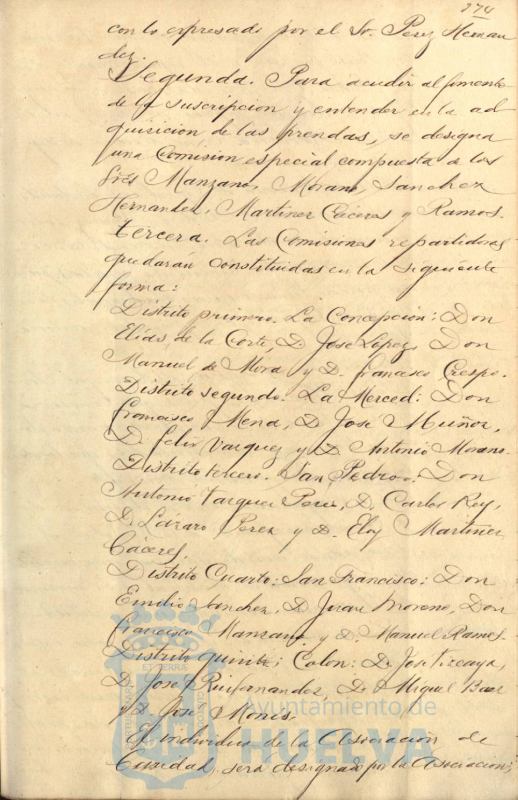 274
con lo expresado por el Sr. Perez Hernan
dez.
Segunda. Para acudir al fomento
de la suscripcion y entender en la ad
quisicion de las prendas, se designa
una Comision especial compuesta de los
Sres Manzano, Morano, Sanchez
Hernandez, Martinez Cáceres y Ramos.
Tercera. Las Comisiones repartidoras
quedarán constituidas en la siguiente
forma:
Distrito primero. La Concepcion: Don
Elias de la Corte, D. Jose Lopez, Don
Manuel de Mora y D. Francisco Crespo.
Distrito segundo. La Merced: Don
Francisco Mena, D. José Muñoz,
D. Felix Vazquez y D. Antonio Morano.
Distrito tercero. San Pedro: Don
Antonio Vazquez Perez, D. Carlos Rey,
D. Lázaro Perez y D. Eloy Martinez
Cáceres.
Distrito Cuarto: San Francisco: Don
Emilio Sanchez, D. Juan Moreno, Don
Francisco Manzano y D. Manuel Ramos.
Distrito quinto: Colon: D. José
D. José Ruifernandez, D. Miguel Baez
y D. José Monis.
El individuo de la Asociacion de
Caridad será designado por la Asociacion;
Ayuntamiento de
HUELVA